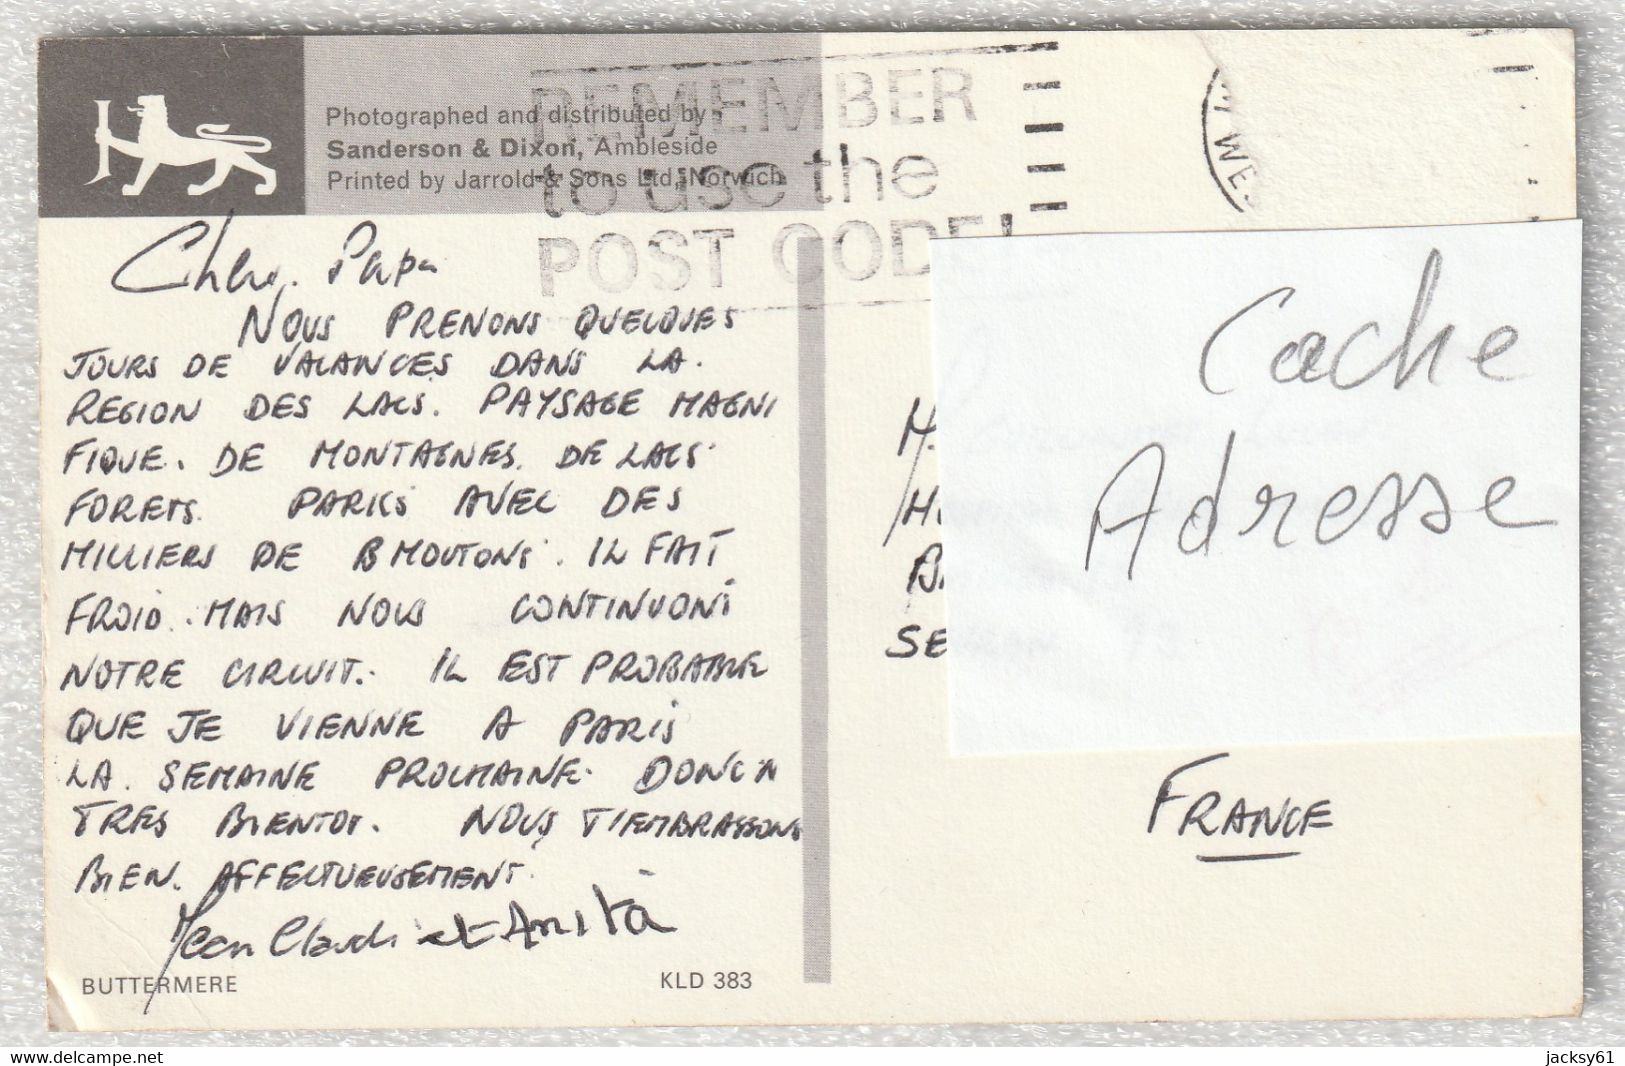 Photographed and distributed by
Sanderson & Dixon, Ambleside
Printed by Jarrold & Sons Ltd, Norwich
REMEMBER
to use the
POST CODE!
WE
Cher Papa
NOUS PRENONS QUELQUES
JOURS DE VACANCES DANS LA.
REGION DES LACS. PAYSAGE MAGNI
FIQUE. DE MONTAGNES. DE LACS.
FORETS. PARKS AVEC DES
MILLIERS DE MOUTONS. IL FAIT
FROID. MAIS NOUS CONTINUONS
NOTRE CIRCUIT. IL EST PROBABLE
QUE JE VIENNE A PARIS
LA SEMAINE PROCHAINE. DONC A
TRES BIENTOT. NOUS T'EMBRASSONS
BIEN. AFFECTUEUSEMENT.
Jean Claude et Anita
BUTTERMERE
KLD 383
Cache
Adresse
M.
SE
FRANCE
jacksy61
https://www.delcampe.net